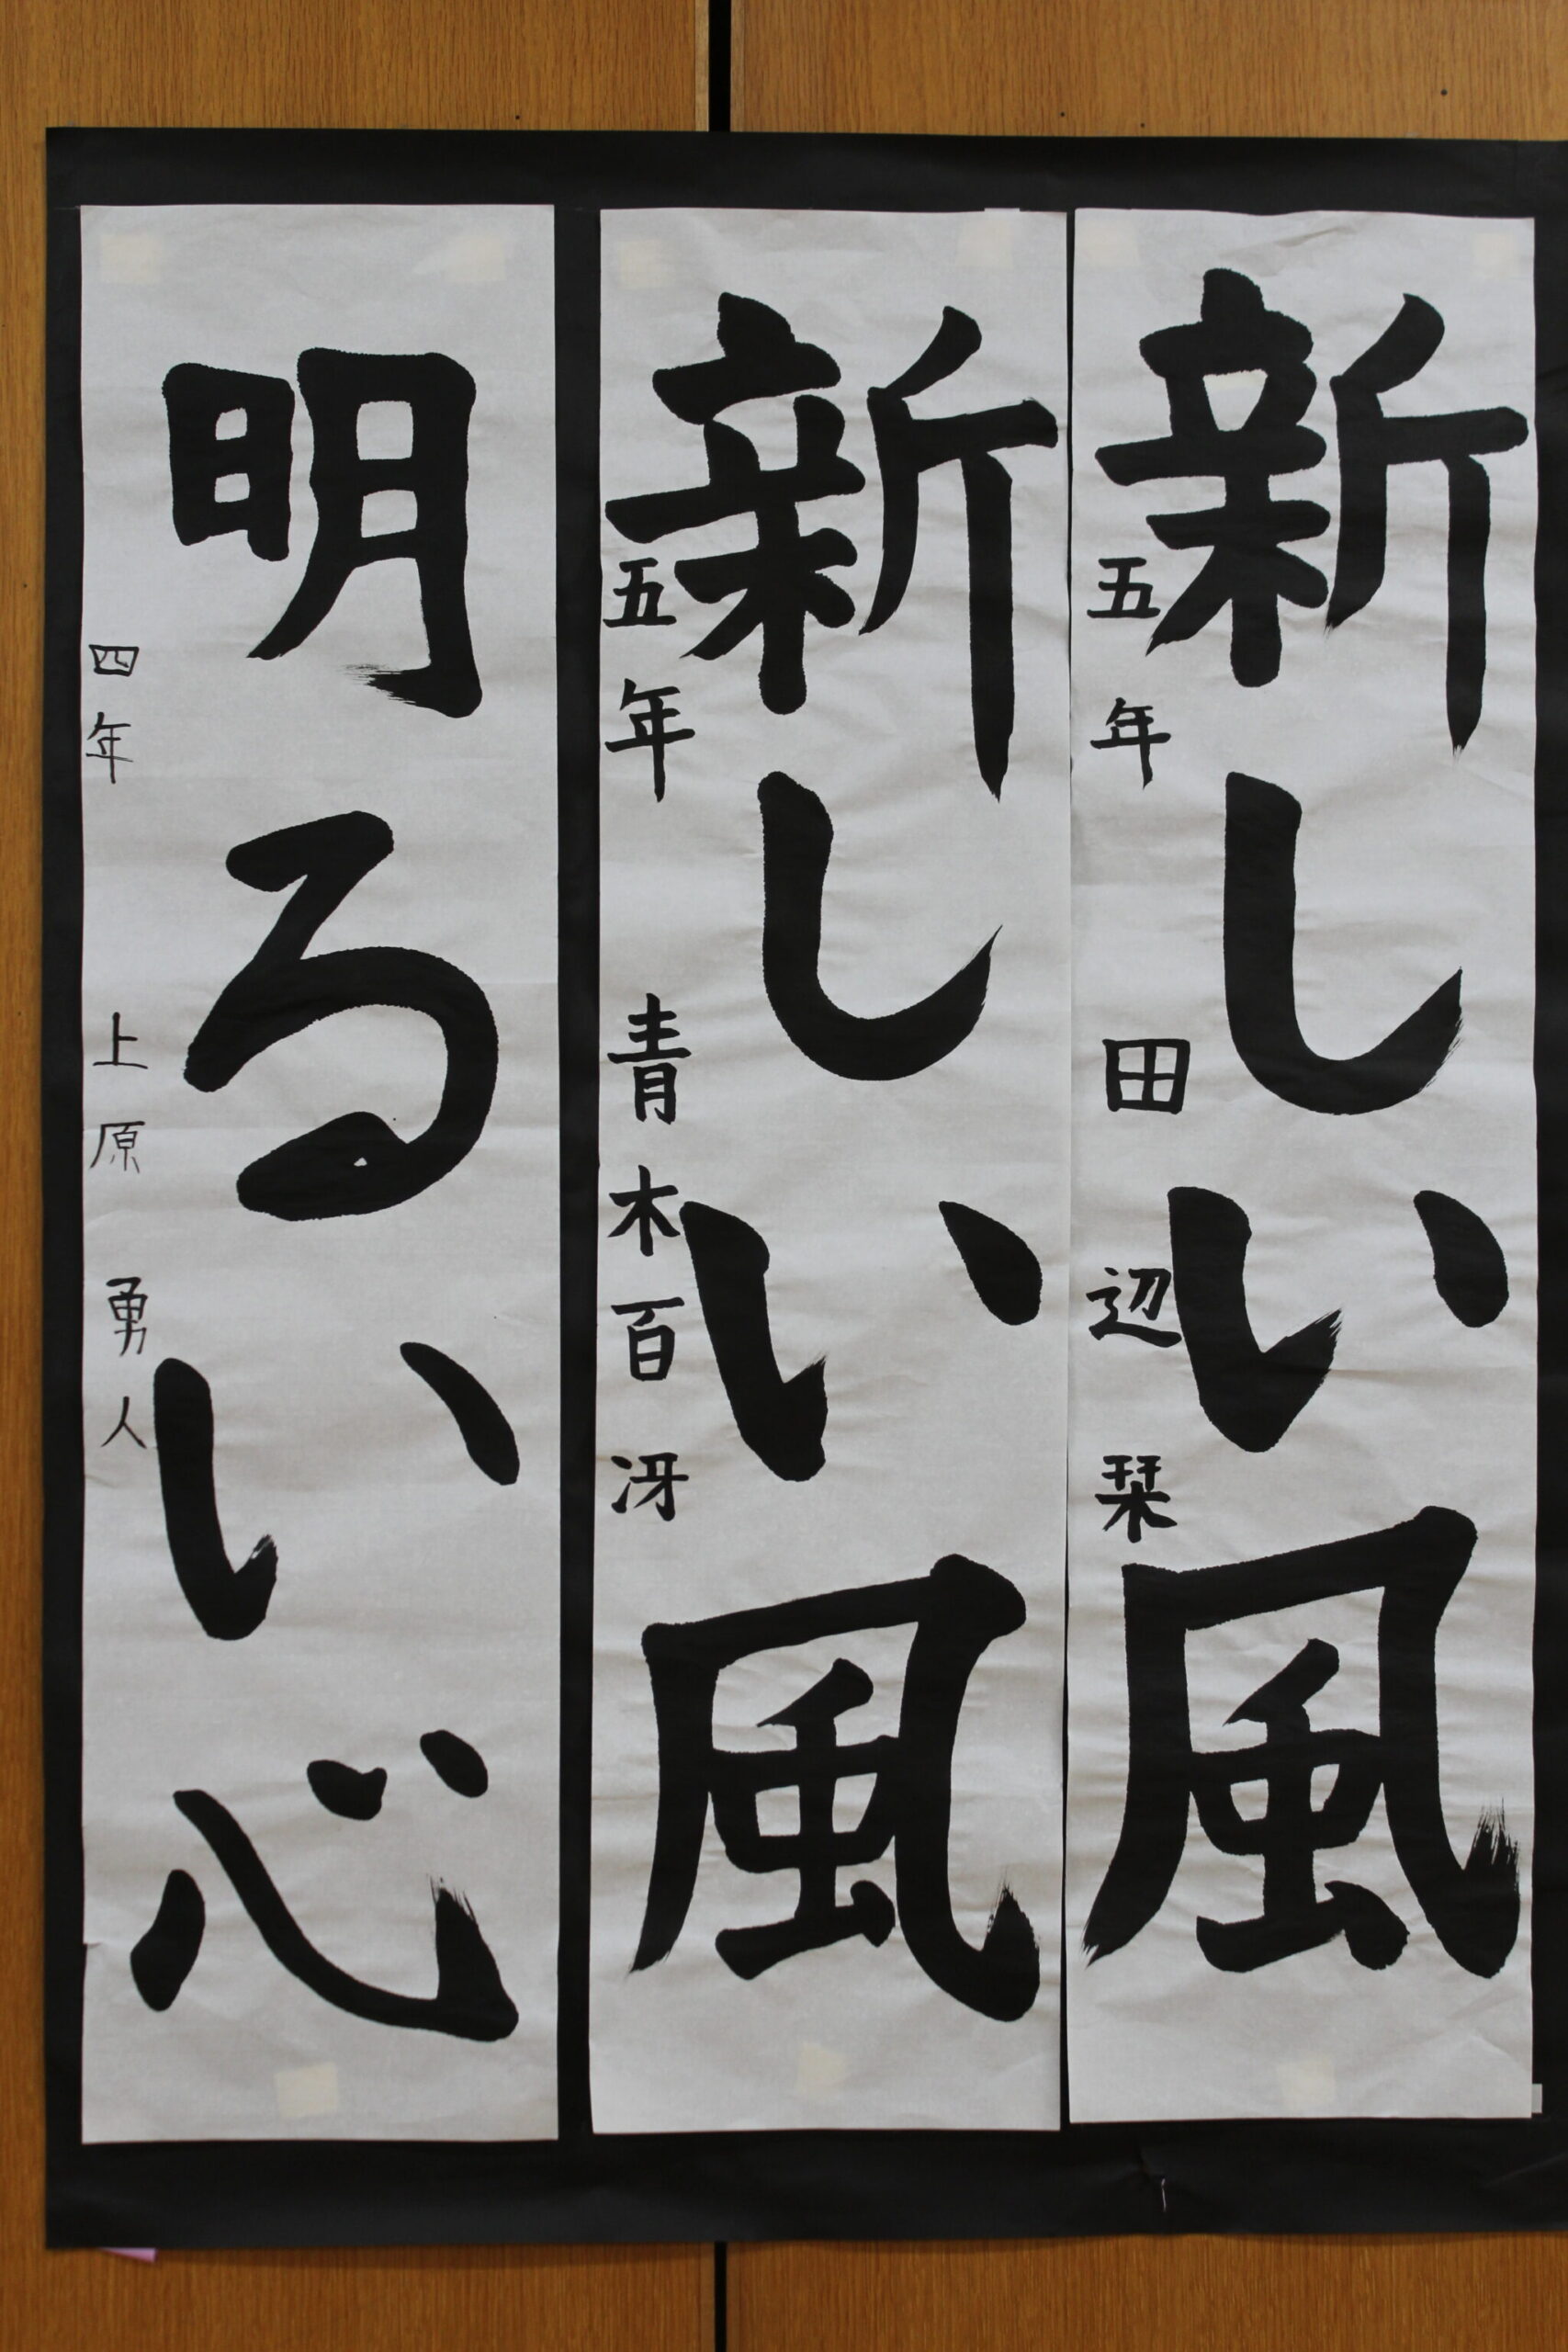 新しい風
五年 田辺栞
新しい風
五年 青木百冴
明るい心
四年 上原勇人